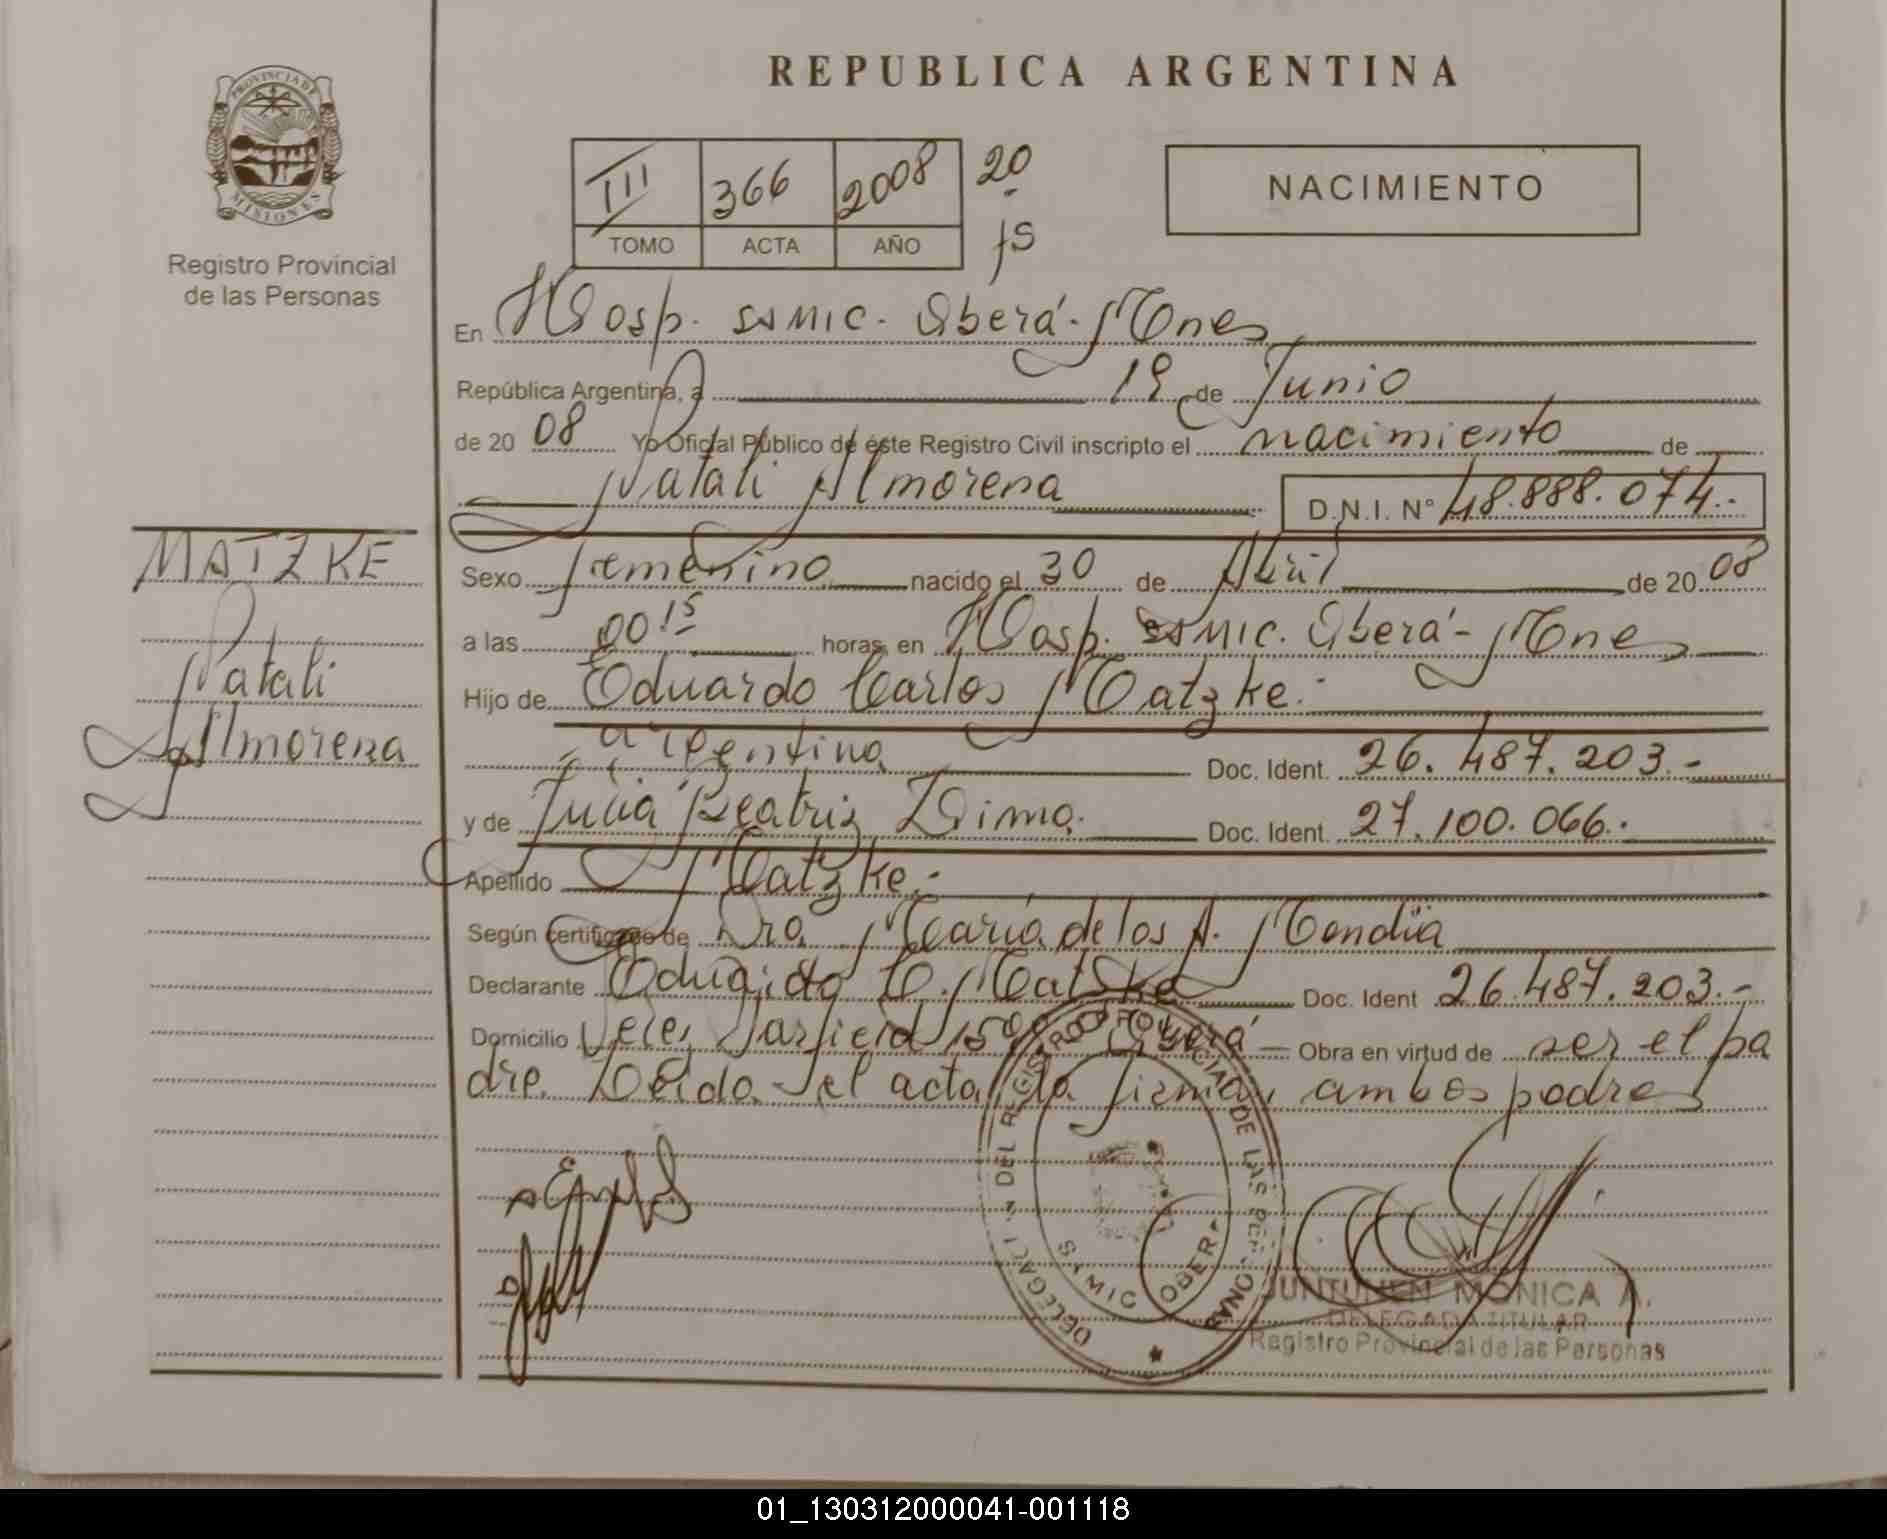 REPUBLICA ARGENTINA
PROVINCIA DE MISIONES
Registro Provincial
de las Personas
III 366 2008 20
TOMO ACTA AÑO
NACIMIENTO
En Hosp. SSMIC. Oberá - Mnes
República Argentina, a 19 de Junio
de 2008 Yo Oficial Público de éste Registro Civil inscripto el nacimiento de
Natali Almorena D.N.I. N° 48.888.074.-
MATZKE
Natali
Almorena
Sexo femenino nacido el 30 de Abril de 2008
a las 00 15 horas, en Hosp. SSMIC. Oberá - Mnes
Hijo de Eduardo Carlos Matzke.-
argentino Doc. Ident. 26.487.203.-
y de Julia Beatriz Dima. Doc. Ident. 27.100.066.-
Apellido Matzke.-
Según certificado de Dra María de los A.
Declarante C. Matzke Doc. Ident 26.487.203.-
Domicilio Velez Sarfield Oberá Obra en virtud de ser el pa
dre. Leida el acta la firman ambos padres
DELEGACION DEL REGISTRO PROVINCIAL DE LAS PERSONAS
SSMIC OBERA
JUNTUNEN MONICA A.
DELEGADA TITULAR
Registro Provincial de las Personas
01_130312000041-001118